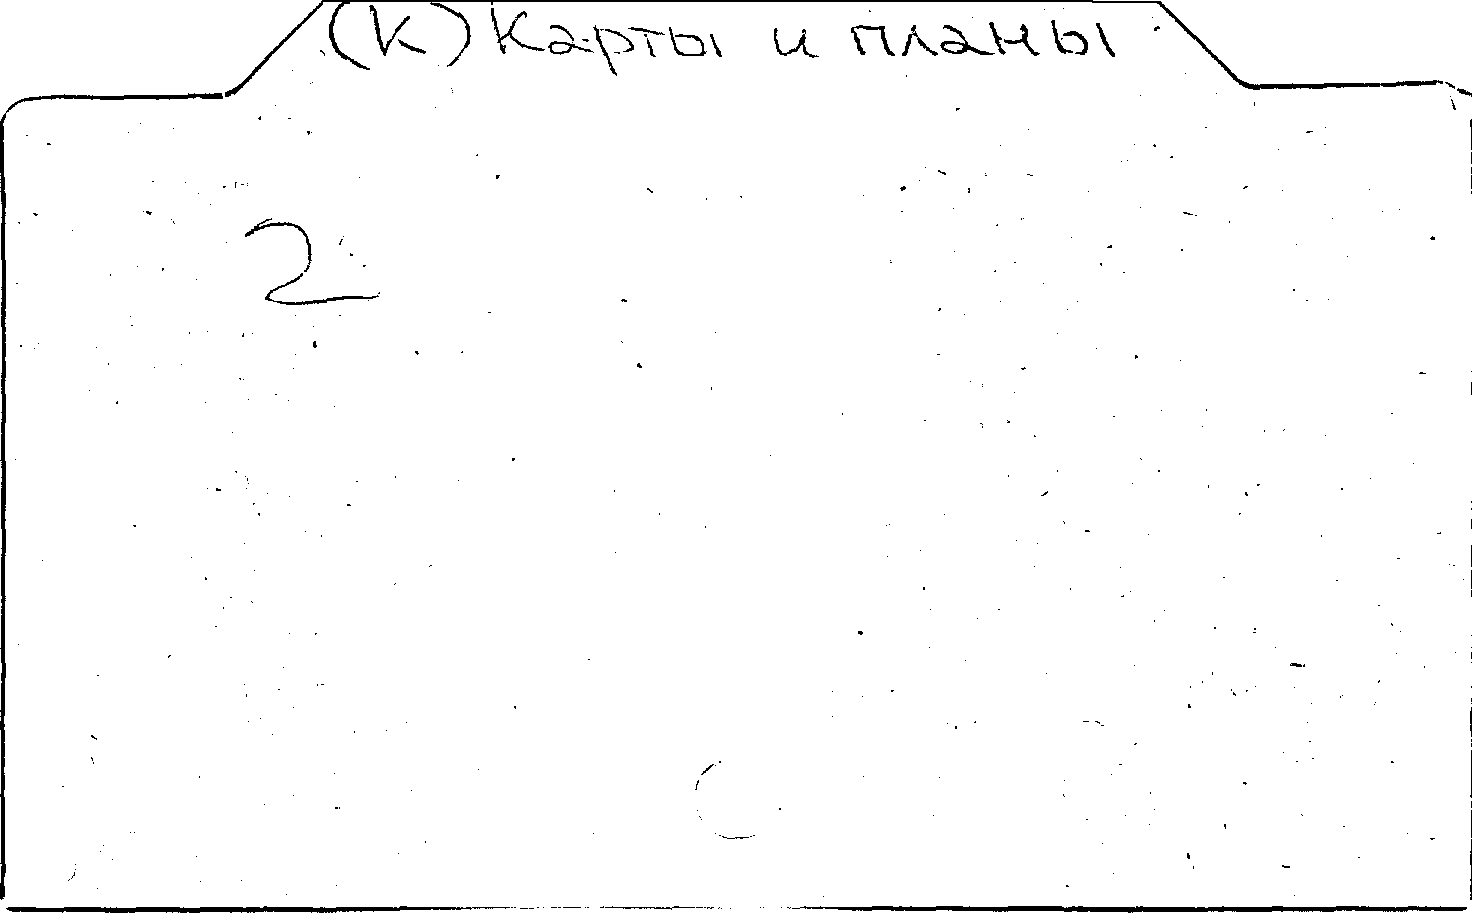 (К) Карты и планы
2